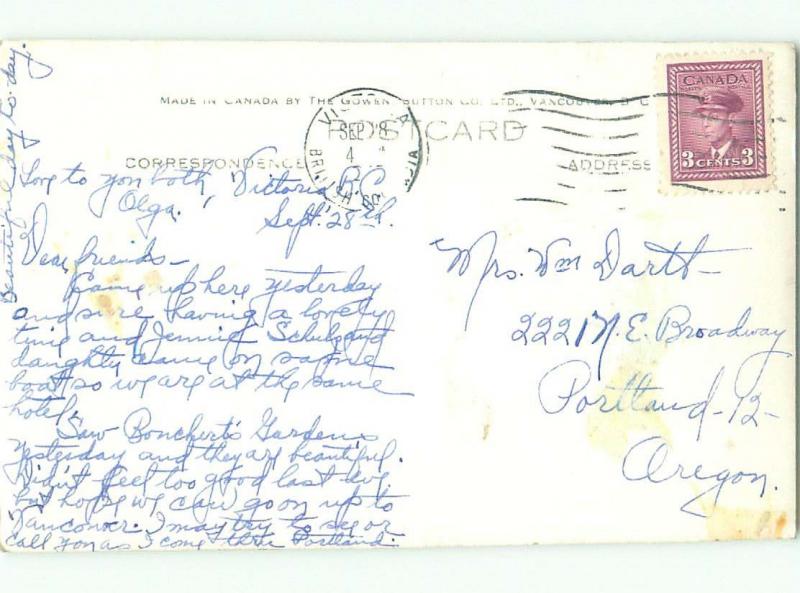 MADE IN CANADA BY THE GOWEN SUTTON CO. LTD., VANCOUVER, B C
POSTCARD
CORRESPONDENCE
ADDRESS
CANADA
3 CENTS 3
VICTORIA
SEP 28
4
BRITISH COLUMBIA
Love to you both
Olga.
Victoria B.C
Sept. 28th.
Dear friends-
Came up here yesterday
and sure having a lovely
time and Jennie Schulz and
daughter came on same
boat so we are at the same
hotel.
Saw Bonchert's Gardens
yesterday and they are beautiful.
Didn't feel too good last eve,
but hope we can go on up to
Vancouver. I may try to see or
call you as I come thru Portland.
Beautiful day to-day.
Mrs. Wm Dartt-
2221 N.E. Broadway
Portland-12-
Oregon.